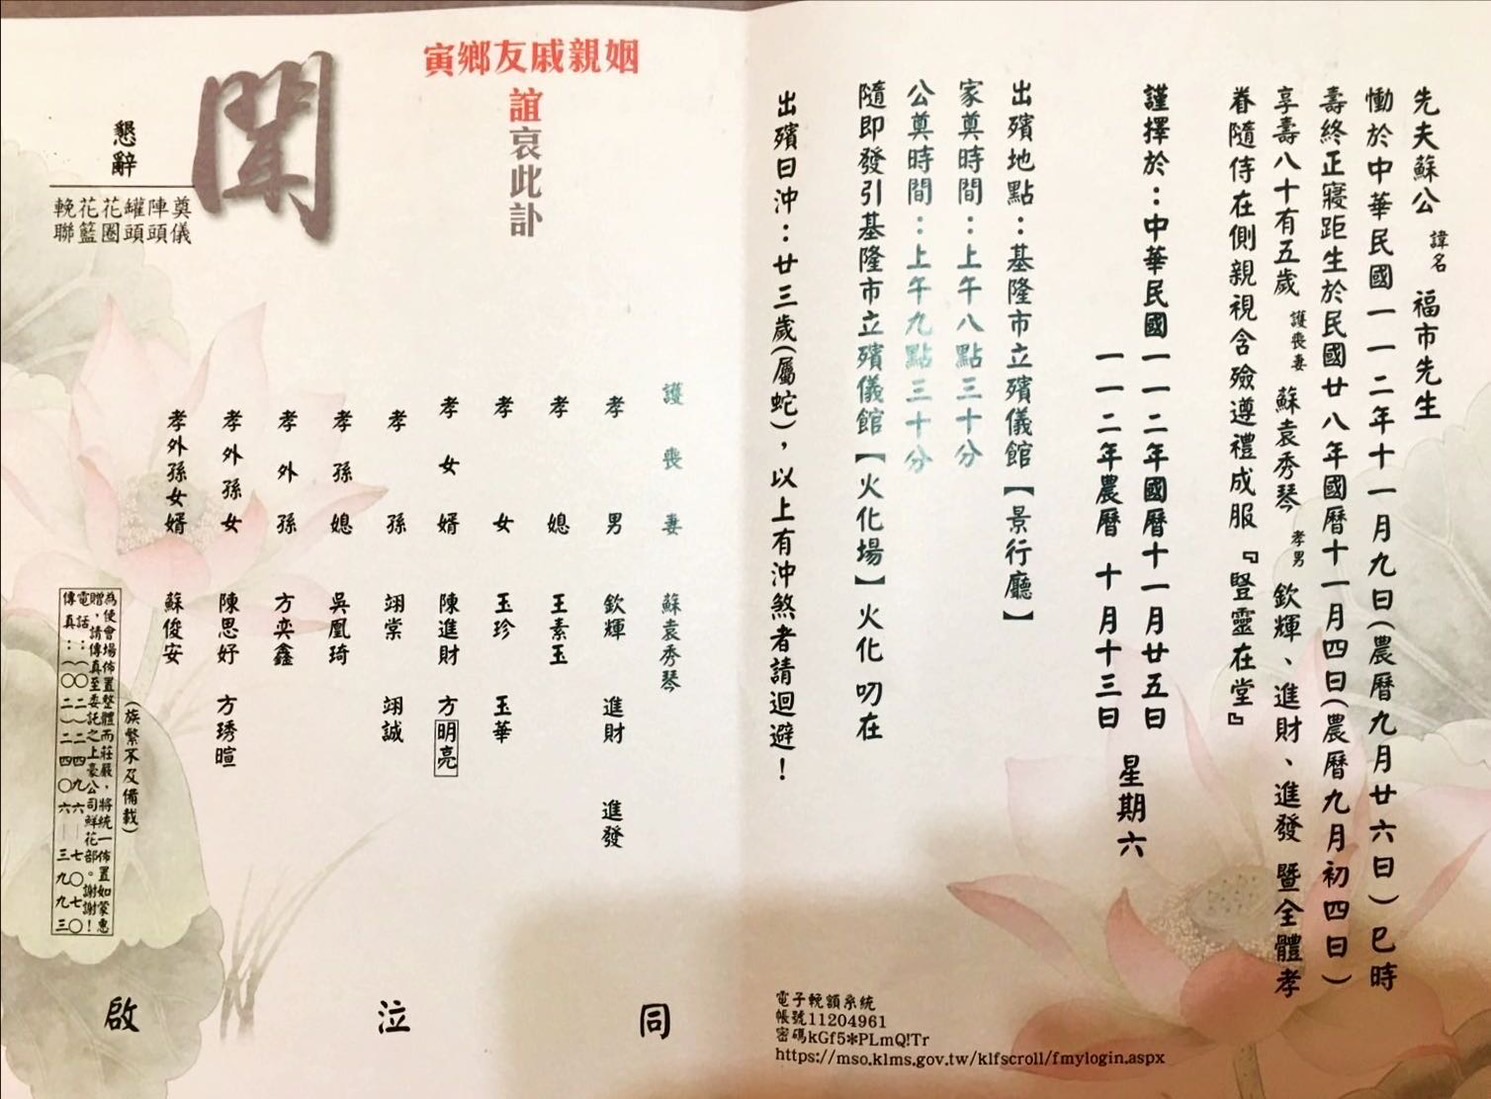 先夫蘇公 諱名 福市先生
慟於中華民國一一二年十一月九日(農曆九月廿六日)巳時
壽終正寢距生於民國廿八年國曆十一月四日(農曆九月初四日)
享壽八十有五歲 護喪妻 蘇袁秀琴 孝男 欽輝、進財、進發 暨全體孝
眷隨侍在側親視含殮遵禮成服『豎靈在堂』
謹擇於：中華民國一一二年國曆十一月廿五日
一一二年農曆 十月十三日
星期六
出殯地點：基隆市立殯儀館【景行廳】
家奠時間：上午八點三十分
公奠時間：上午九點三十分
隨即發引基隆市立殯儀館【火化場】火化 叨在
出殯日沖：廿三歲(屬蛇)，以上有沖煞者請迴避！
電子輓額系統
帳號11204961
密碼kGf5*PLmQ!Tr
https://mso.klms.gov.tw/klfscroll/fmylogin.aspx
寅鄉友戚親姻
誼哀此訃
聞
懇辭
奠儀
陣頭
罐頭
花圈
花籃
輓聯
護喪妻 蘇袁秀琴
孝男 欽輝 進財 進發
孝媳 王素玉
孝女 玉珍 玉華
孝女婿 陳進財 方明亮
孝孫 翊棠 翊誠
孝孫媳 吳凰琦
孝外孫 方奕鑫
孝外孫女 陳思妤 方琇暄
孝外孫女婿 蘇俊安
(族繁不及備載)
為使會場佈置整體而莊嚴，將統一佈置如蒙惠
贈，請傳真至委託之上豪公司鮮花部。謝謝！
電話：(〇二)二四九六—七〇七〇
傳真：(〇二)二四〇六—三九九三
同 泣 啟